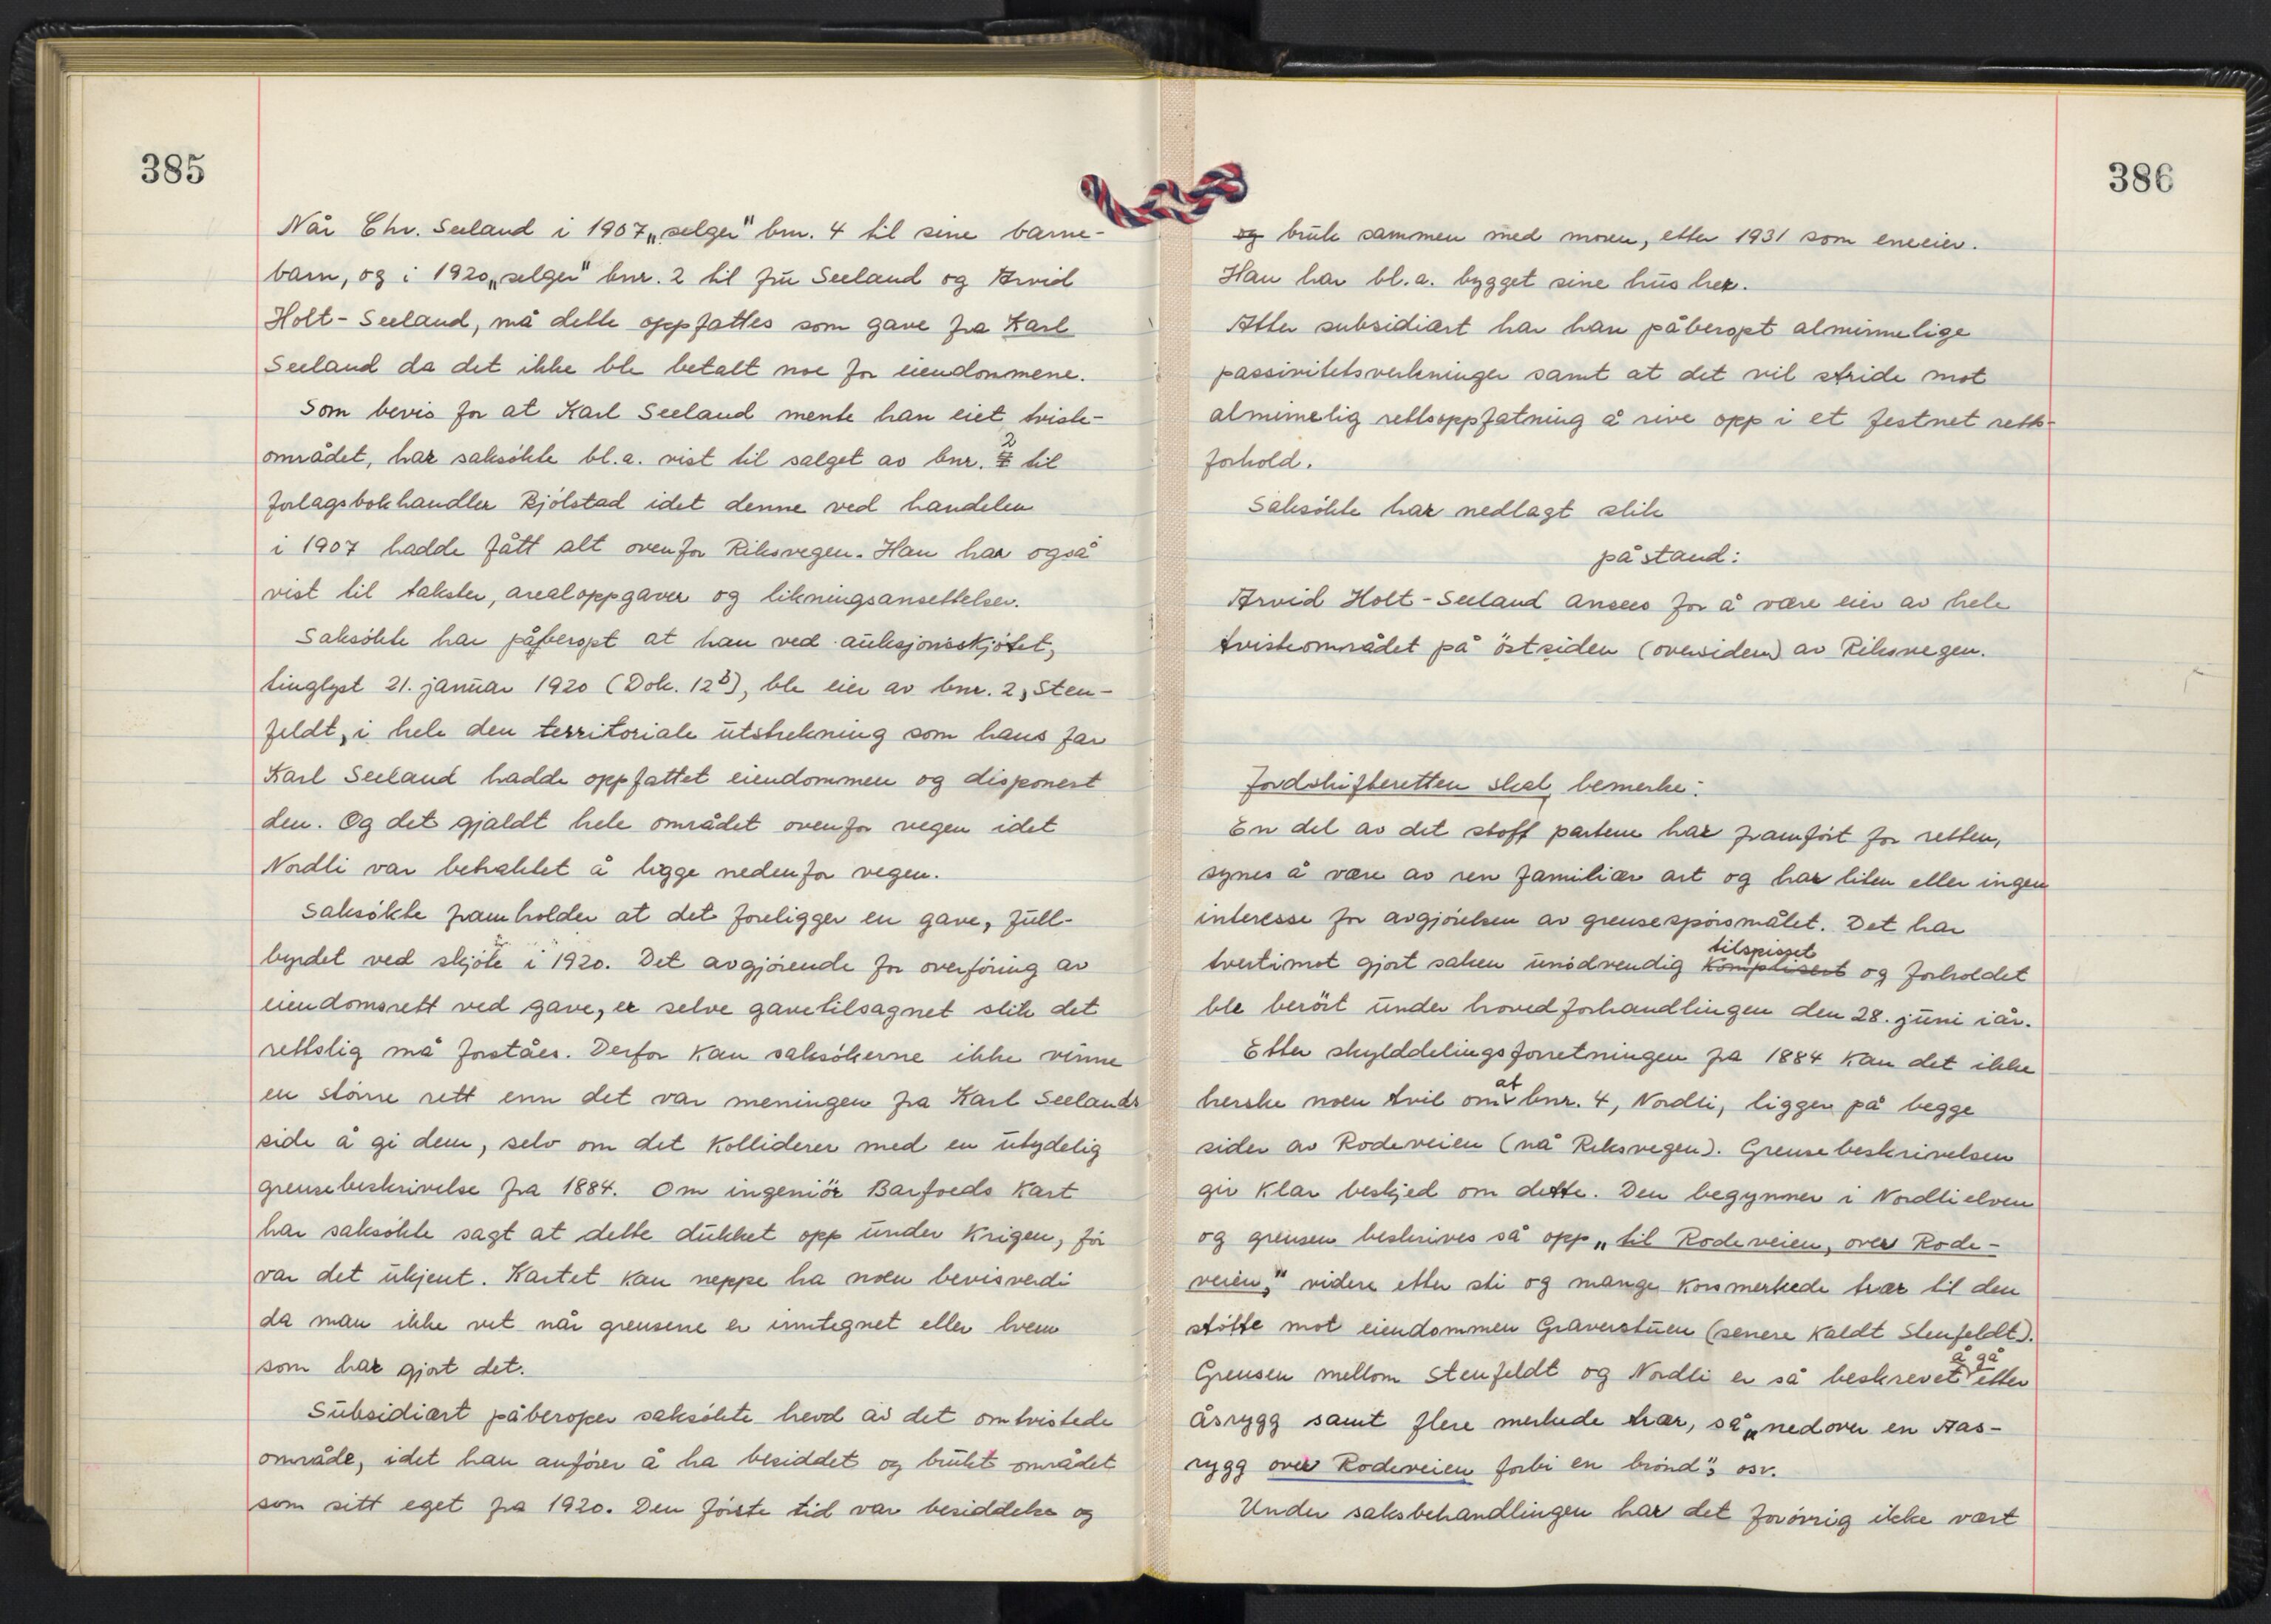 385
Når Chr. Seeland i 1907 „selger" bnr. 4 til sine barne-
barn, og i 1920 „selger" bnr. 2 til fru Seeland og Arvid
Holt-Seeland, må dette oppfattes som gave fra Karl
Seeland da det ikke ble betalt noe for eiendommene.
Som bevis for at Karl Seeland mente han eiet tviste-
området, har saksökte bl.a. vist til salget av bnr. 2 til
forlagsbokhandler Bjölstad idet denne ved handelen
i 1907 hadde fått alt ovenfor Riksvegen. Han har også
vist til takster, arealoppgaver og likningsansettelser.
Saksökte har påberopt at han ved auksjonsskjötet,
tinglyst 21. januar 1920 (Dok. 12b), ble eier av bnr. 2, Sten-
feldt, i hele den territoriale utstrekning som hans far
Karl Seeland hadde oppfattet eiendommen og disponert
den. Og det gjaldt hele området ovenfor vegen idet
Nordli var betraktet å ligge nedenfor vegen.
Saksökte framholder at det foreligger en gave, full-
byrdet ved skjöte i 1920. Det avgjörende for overföring av
eiendomsrett ved gave, er selve gavetilsagnet slik det
rettslig må forståes. Derfor kan saksökerne ikke vinne
en större rett enn det var meningen fra Karl Seelands
side å gi dem, selv om det kolliderer med en utydelig
grensebeskrivelse fra 1884. Om ingeniör Barfoeds kart
har saksökte sagt at dette dukket opp under krigen, för
var det ukjent. Kartet kan neppe ha noen bevisverdi
da man ikke vet når grensene er inntegnet eller hvem
som har gjort det.
Subsidiært påberoper saksökte hevd av det omtvistede
område, idet han anförer å ha besiddet og brukt området
som sitt eget fra 1920. Den förste tid var besiddelse og
386
og bruk sammen med moren, etter 1931 som eneeier.
Han har bl.a. bygget sine hus her.
Atter subsidiært har han påberopt alminnelige
passivitetsvirkninger samt at det vil stride mot
alminnelig rettsoppfatning å rive opp i et festnet retts-
forhold.
Saksökte har nedlagt slik
påstand:
Arvid Holt-Seeland ansees for å være eier av hele
tvisteområdet på östsiden (oversiden) av Riksvegen.
Jordskifteretten skal bemerke:
En del av det stoff partene har framfört for retten,
synes å være av ren familiær art og har liten eller ingen
interesse for avgjörelsen av grensespörsmålet. Det har
tilspisset
tvertimot gjort saken unödvendig komplisert og forholdet
ble berört under hovedforhandlingen den 28. juni i år.
Etter skylddelingsforretningen fra 1884 kan det ikke
herske noen tvil om at bnr. 4, Nordli, ligger på begge
sider av Rodeveien (nå Riksvegen). Grensebeskrivelsen
gir klar beskjed om dette. Den begynner i Nordlielven
og grensen beskrives så opp „til Rodeveien, over Rode-
veien," videre etter sti og mange korsmerkede trær til den
stötte mot eiendommen Graverstuen (senere kaldt Stenfeldt).
Grensen mellom Stenfeldt og Nordli er så beskrevet å gå etter
åsrygg samt flere merkede trær, så „nedover en Aas-
rygg over Rodeveien forbi en brönd", osv.
Under saksbehandlingen har det forövrig ikke vært